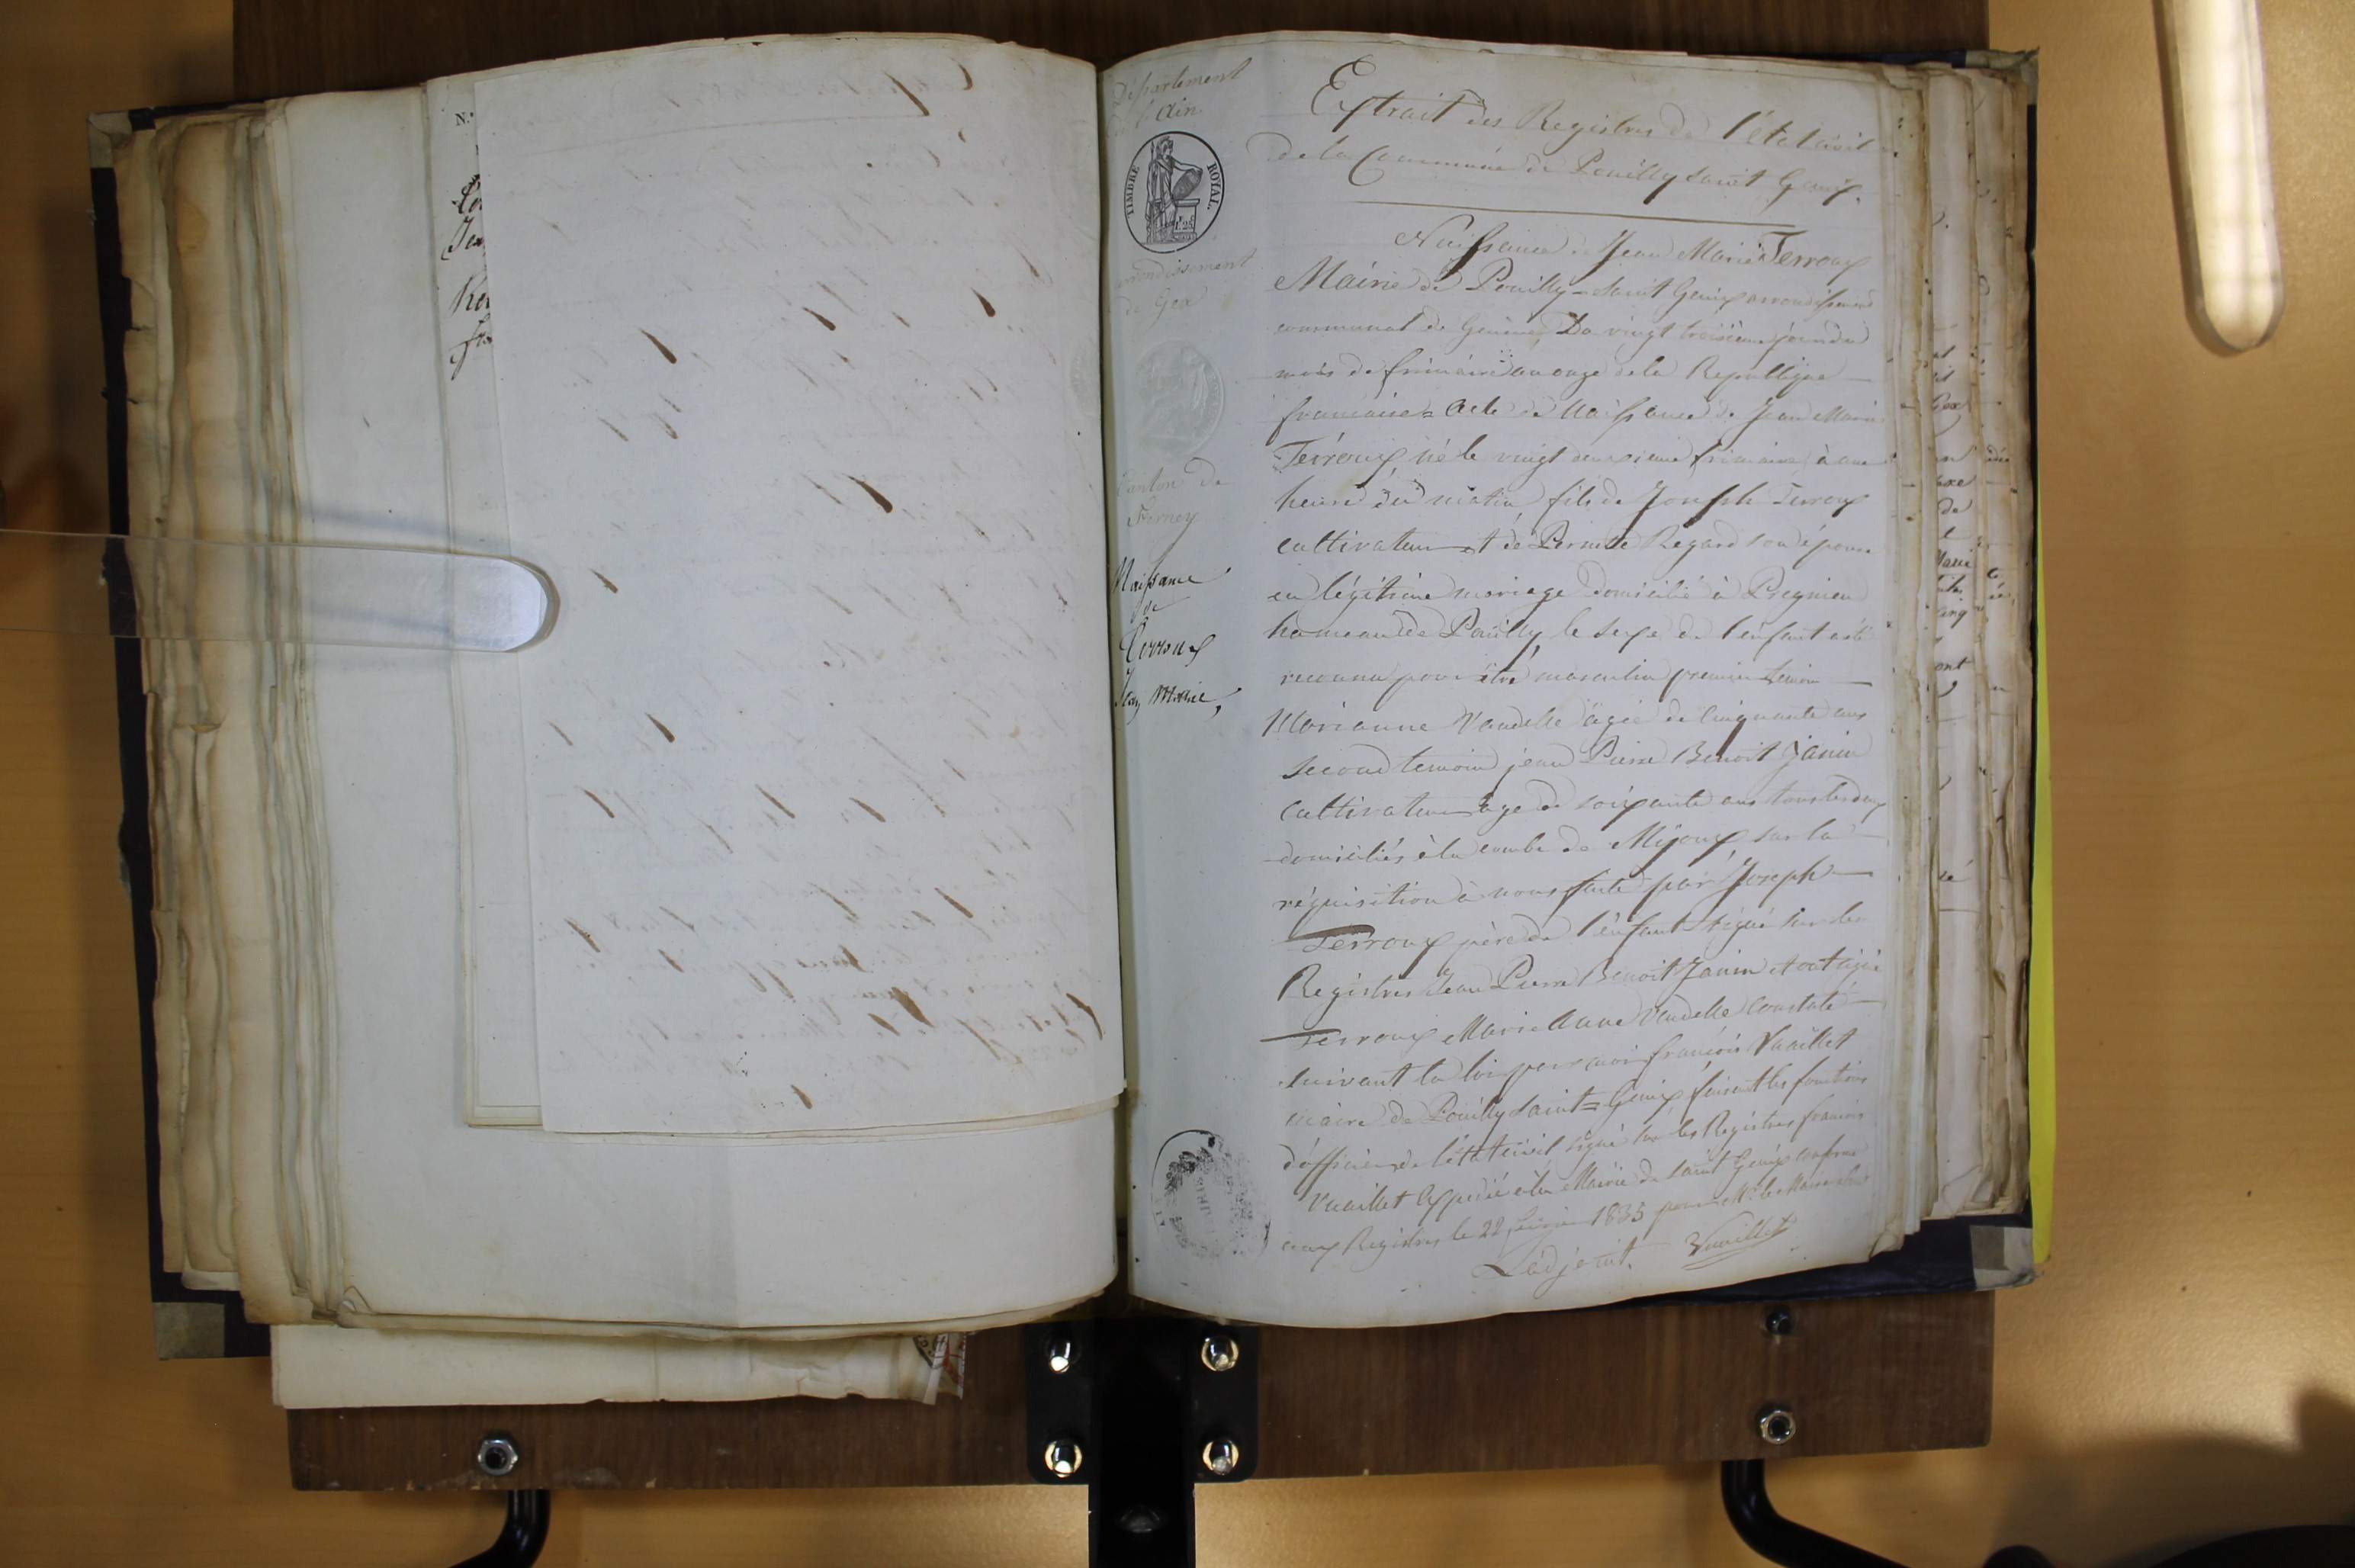 N.°
Département
de l'Ain
TIMBRE ROYAL.
arrondissement
de Gex
Canton de
Ferney
Naissance
de
Terroux
Jean Marie,
Extrait des Registres de l'état civil
de la Commune de Pouilly Saint Genix.
Naissance de Jean Marie Terroux
Mairie de Pouilly-Saint Genix arrondissement
communal de Genève, Du vingt troisième jour du
mois de frimaire an onze de la Republique
francaise = Acte de Naissance de Jean Marie
Terroux, né le vingt deuxième frimaire à une
heure du matin fils de Joseph Terroux
cultivateur et de Pernette Regard son épouse
en légitime mariage domicilié à Pregnien
hameau de Pouilly, le sexe de l'enfant a été
reconnu pour être masculin premier temoin
Marianne Vandelle âgée de Cinquante ans
second temoin jean Pierre Benoit Janin
Cultivateur âge de soixante ans tous les deux
domiciliés à la combe de Mijoux sur la
réquisition à nous faite par Joseph
Terroux père de l'enfant signé sur les
Registres Jean Pierre Benoit Janin et ont signé
Terroux Marie Anne Vandelle Constaté
suivant la loi par moi françois Vuaillet
maire de Pouilly Saint = Genix faisant les fonctions
d'officier de l'état civil signé sur les Registres francois
Vuaillet Expedié à la Mairie de Saint Genix conforme
aux Registres le 22 1835 pour Mr. le Maire
L'adjoint. Vuaillet